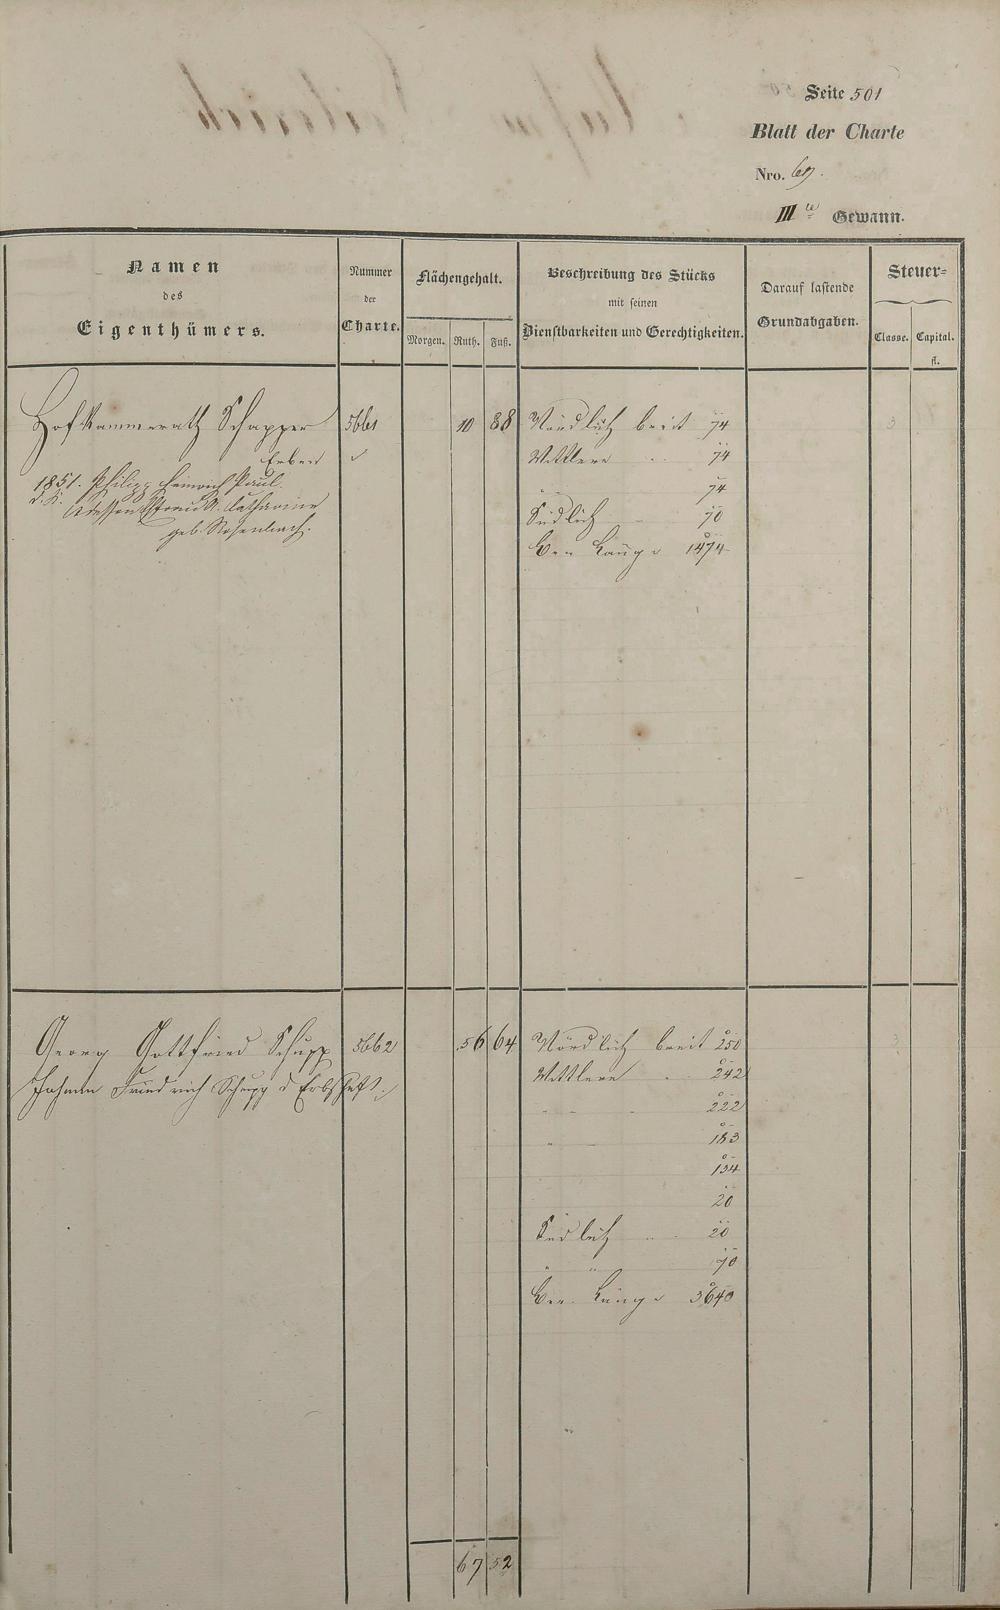 Seite 501
Blatt der Charte
Nro. 69.
III te Gewann.
Namen
des
Eigenthümers.
Nummer
der
Charte.
Flächengehalt.
Morgen. Ruth. Fuß.
Beschreibung des Stücks
mit seinen
Dienstbarkeiten und Gerechtigkeiten.
Darauf lastende
Grundabgaben.
Steuer=
Classe. Capital.
fl.
Hofkammerath Schapper 5661 10 88 Nördlich breit 74
Erben Mittlere 74
1851. Philipp Heinrich Paul 74
Catharine Südlich 70
geb. Rosenbach. Länge 1474
Georg Gottfried Schupp 5662 56 64 Nördlich breit 250
Johann Friedrich Schupp d Erbschaft. Mittlere 242
222
183
134
20
Südlich 20
" " 70
Länge 3640
67 52